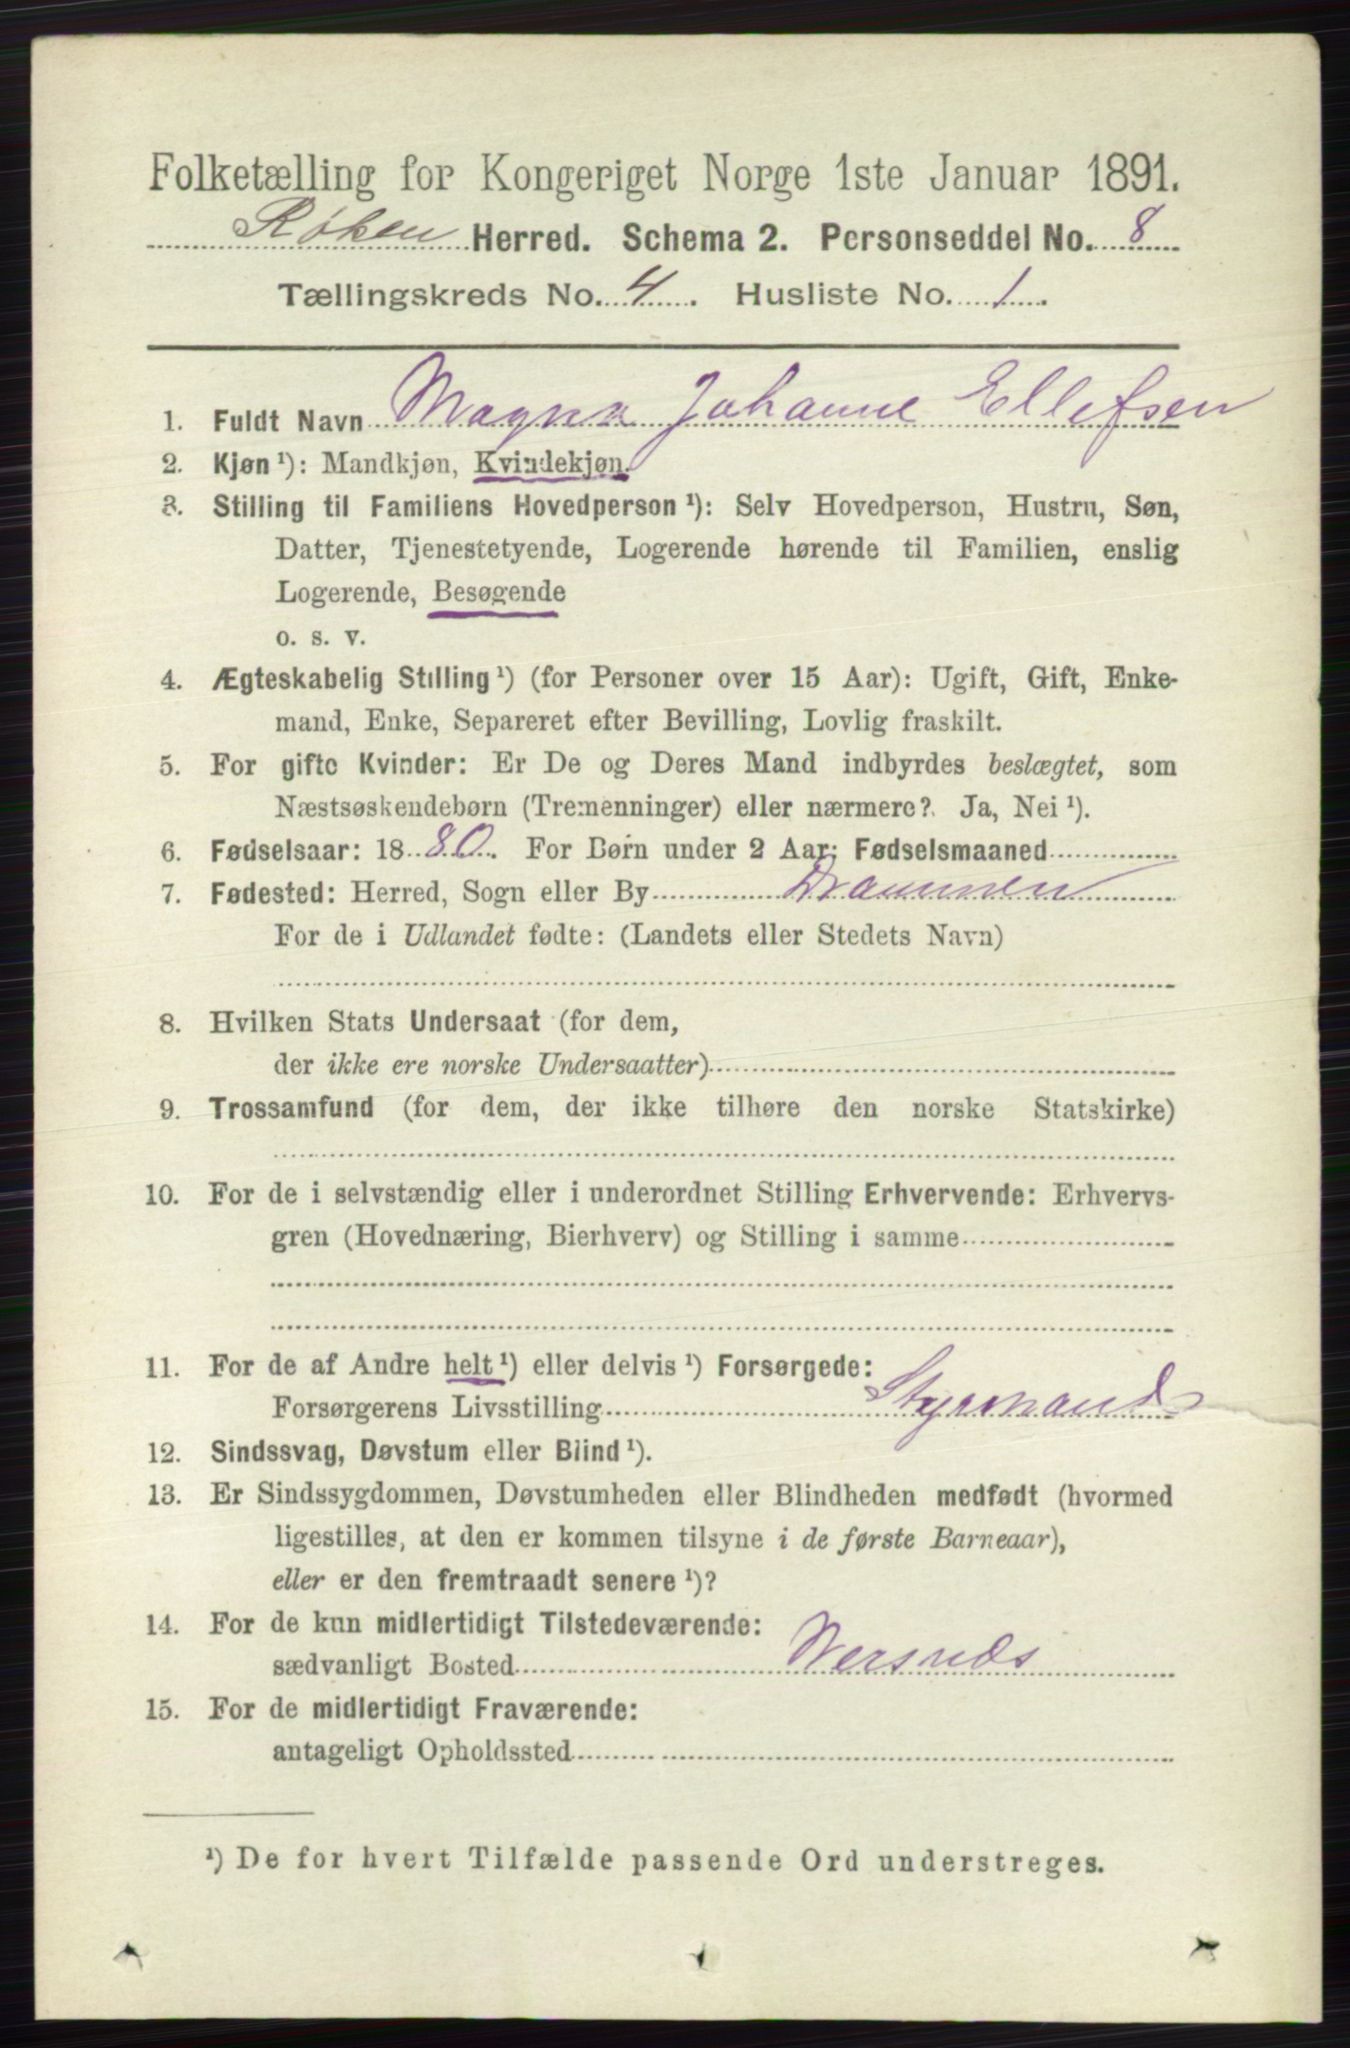 Folketælling for Kongeriget Norge 1ste Januar 1891.
Røken Herred. Schema 2. Personseddel No. 8
Tællingskreds No. 4. Husliste No. 1.
1. Fuldt Navn Magna Johanne Ellefsen
2. Kjøn ¹): Mandkjøn, Kvindekjøn.
3. Stilling til Familiens Hovedperson ¹): Selv Hovedperson, Hustru, Søn,
Datter, Tjenestetyende, Logerende hørende til Familien, enslig
Logerende, Besøgende
o. s. v.
4. Ægteskabelig Stilling ¹) (for Personer over 15 Aar): Ugift, Gift, Enke-
mand, Enke, Separeret efter Bevilling, Lovlig fraskilt.
5. For gifte Kvinder: Er De og Deres Mand indbyrdes beslægtet, som
Næstsøskendebørn (Tremenninger) eller nærmere? Ja, Nei ¹).
6. Fødselsaar: 1880. For Børn under 2 Aar: Fødselsmaaned
7. Fødested: Herred, Sogn eller By Drammen
For de i Udlandet fødte: (Landets eller Stedets Navn)
8. Hvilken Stats Undersaat (for dem,
der ikke ere norske Undersaatter)
9. Trossamfund (for dem, der ikke tilhøre den norske Statskirke)
10. For de i selvstændig eller i underordnet Stilling Erhvervende: Erhvervs-
gren (Hovednæring, Bierhverv) og Stilling i samme
11. For de af Andre helt ¹) eller delvis ¹) Forsørgede:
Forsørgerens Livsstilling Styrmand
12. Sindssvag, Døvstum eller Blind ¹).
13. Er Sindssygdommen, Døvstumheden eller Blindheden medfødt (hvormed
ligestilles, at den er kommen tilsyne i de første Barneaar),
eller er den fremtraadt senere ¹)?
14. For de kun midlertidigt Tilstedeværende:
sædvanligt Bosted
15. For de midlertidigt Fraværende:
antageligt Opholdssted
¹) De for hvert Tilfælde passende Ord understreges.